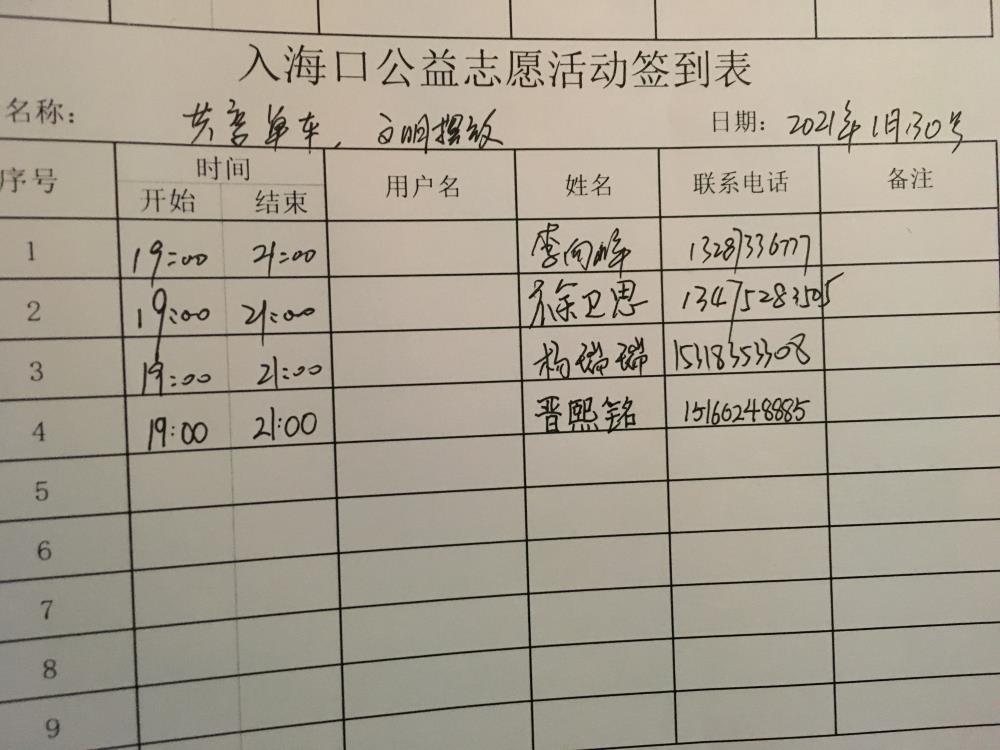 入海口公益志愿活动签到表
名称: 共享单车,文明摆放 日期: 2021年1月30号
序号 时间 用户名 姓名 联系电话 备注
开始 结束
1 19:00 21:00 李向峰 13287336777
2 19:00 21:00 徐卫思 13475283505
3 19:00 21:00 杨瑞瑞 15318353308
4 19:00 21:00 晋熙铭 15166248885
5
6
7
8
9